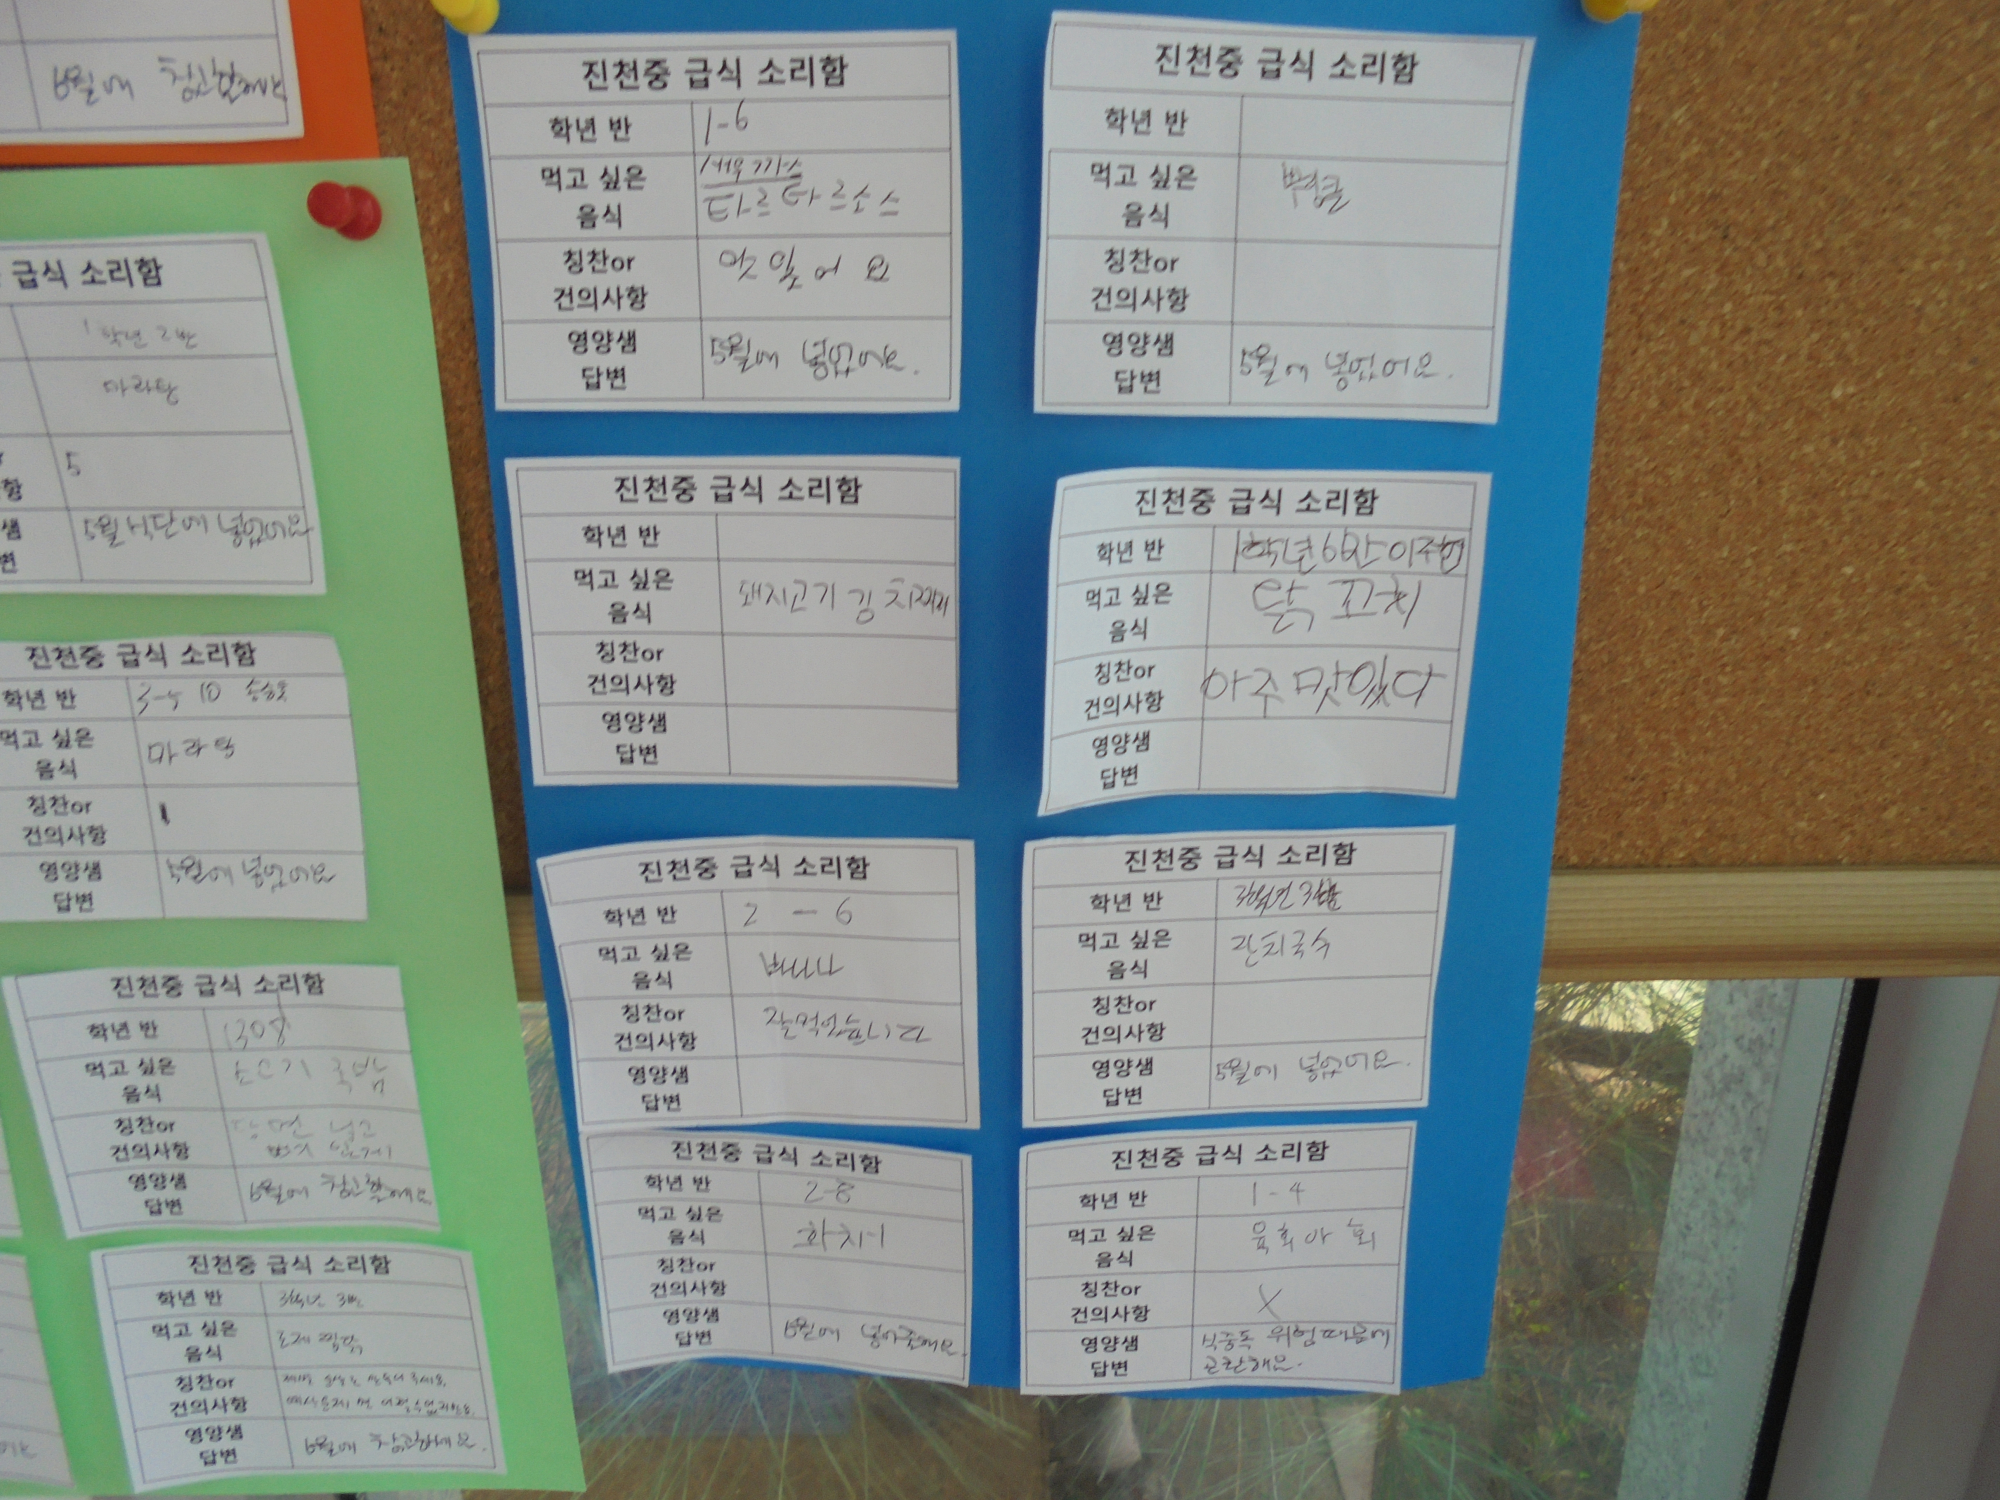 6월에 참고할게요
급식 소리함
1학년 2반
마라탕
5
항
샘
5월 식단에 넣었어요
변
진천중 급식 소리함
학년 반
3-5 10
먹고 싶은
음식
마라탕
칭찬or
건의사항
영양샘
답변
5월에 넣었어요
진천중 급식 소리함
학년 반
1308
먹고 싶은
음식
소고기 국밥
칭찬or
건의사항
당면 넣고
영양샘
답변
6월에 참고할게요
진천중 급식 소리함
학년 반
3학년 3반
먹고 싶은
음식
찜닭
칭찬or
건의사항
영양샘
답변
6월에 참고할게요.
진천중 급식 소리함
학년 반
1-6
먹고 싶은
음식
새우까스
타르타르소스
칭찬or
건의사항
맛있어요
영양샘
답변
5월에 넣었어요.
진천중 급식 소리함
학년 반
먹고 싶은
음식
칭찬or
건의사항
영양샘
답변
5월에 넣었어요.
진천중 급식 소리함
학년 반
먹고 싶은
음식
돼지고기 김치찌개
칭찬or
건의사항
영양샘
답변
진천중 급식 소리함
학년 반
1학년 6반
먹고 싶은
음식
닭꼬치
칭찬or
건의사항
아주 맛있다
영양샘
답변
진천중 급식 소리함
학년 반
2 - 6
먹고 싶은
음식
칭찬or
건의사항
잘먹었습니다
영양샘
답변
진천중 급식 소리함
학년 반
3학년 3반
먹고 싶은
음식
잔치국수
칭찬or
건의사항
영양샘
답변
5월에 넣었어요.
진천중 급식 소리함
학년 반
2-8
먹고 싶은
음식
화채
칭찬or
건의사항
영양샘
답변
6월에 넣어줄게요.
진천중 급식 소리함
학년 반
1-4
먹고 싶은
음식
육회아 회
칭찬or
건의사항
X
영양샘
답변
식중독 위험때문에
곤란해요.